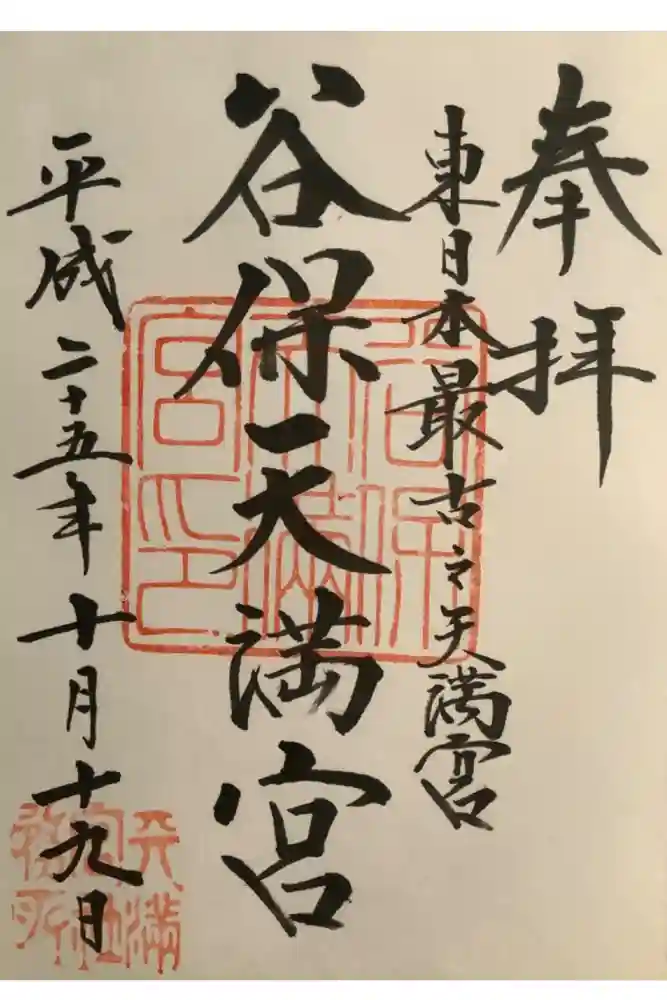 奉拝
東日本最古之天満宮
谷保天満宮
平成二十五年十月十九日
谷保天満宮印